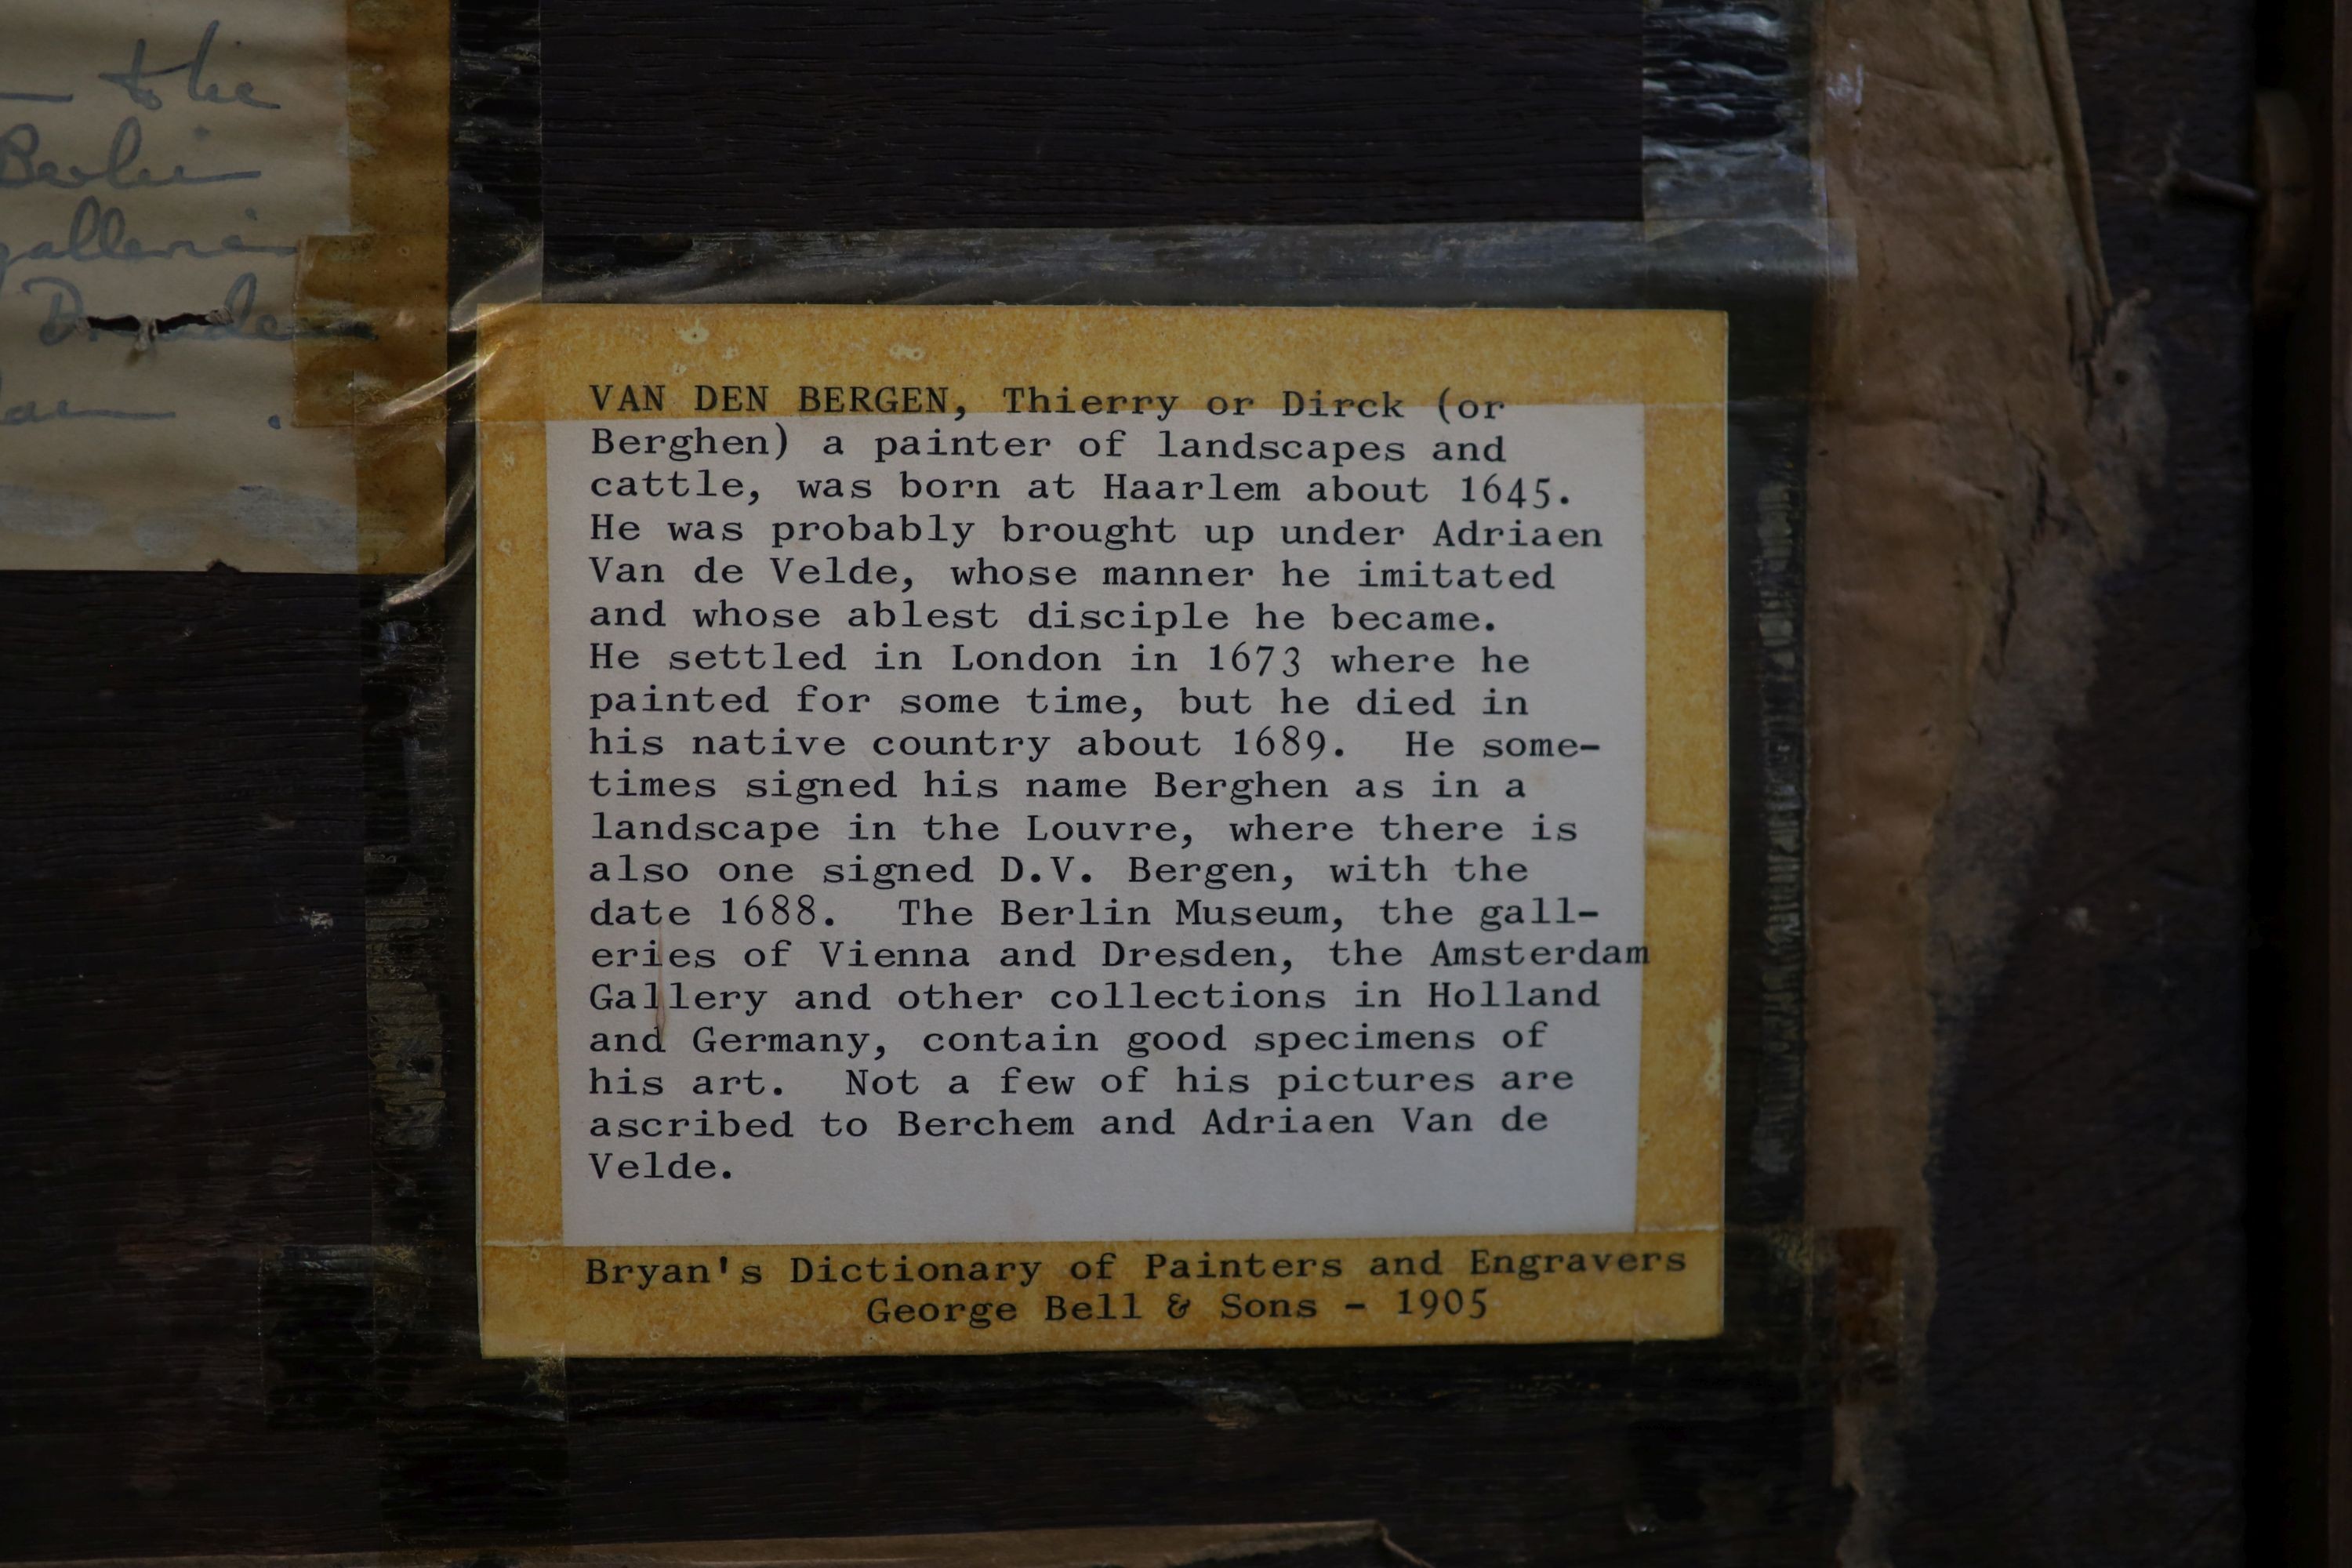 the
Berlin
gallerie
Dresden
VAN DEN BERGEN, Thierry or Dirck (or
Berghen) a painter of landscapes and
cattle, was born at Haarlem about 1645.
He was probably brought up under Adriaen
Van de Velde, whose manner he imitated
and whose ablest disciple he became.
He settled in London in 1673 where he
painted for some time, but he died in
his native country about 1689. He some-
times signed his name Berghen as in a
landscape in the Louvre, where there is
also one signed D.V. Bergen, with the
date 1688. The Berlin Museum, the gall-
eries of Vienna and Dresden, the Amsterdam
Gallery and other collections in Holland
and Germany, contain good specimens of
his art. Not a few of his pictures are
ascribed to Berchem and Adriaen Van de
Velde.
Bryan's Dictionary of Painters and Engravers
George Bell & Sons - 1905